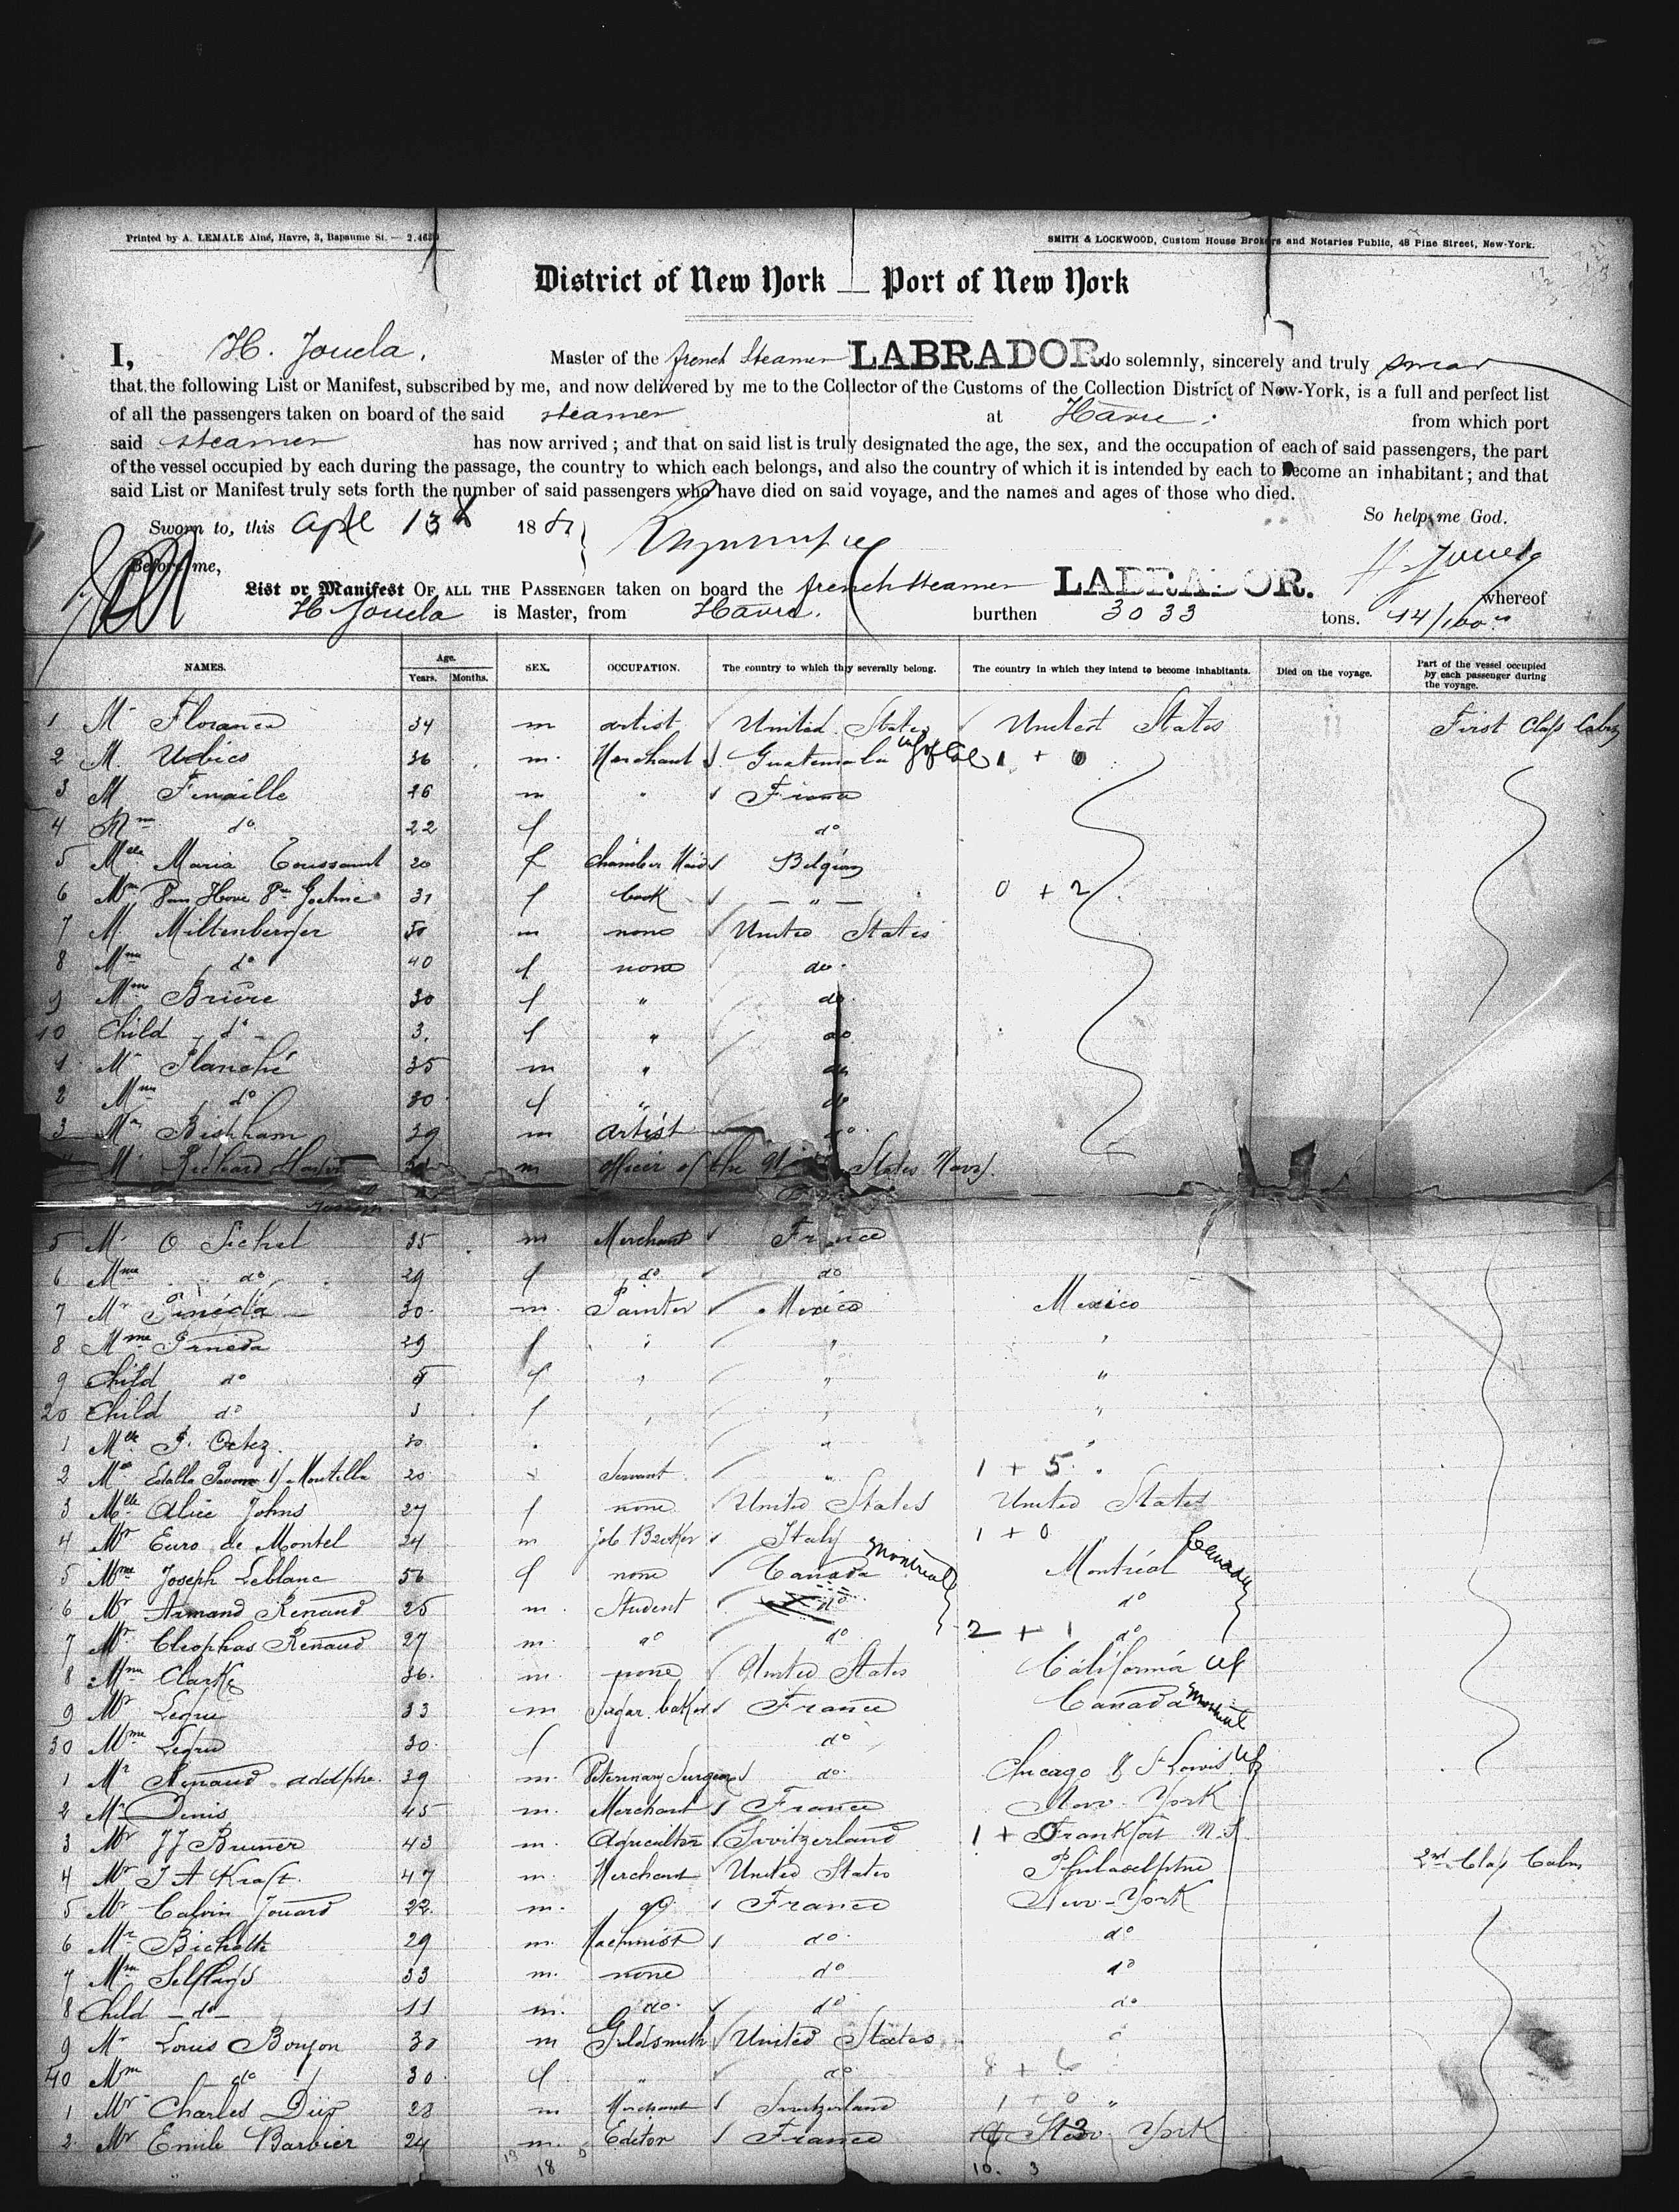 Printed by A. LEMALE Aîné, Havre, 3, Bapaume St. — 2.4630
SMITH & LOCKWOOD, Custom House Brokers and Notaries Public, 48 Pine Street, New-York.
District of New York — Port of New York
I, H. Jouela. Master of the french Steamer LABRADOR do solemnly, sincerely and truly swear
that the following List or Manifest, subscribed by me, and now delivered by me to the Collector of the Customs of the Collection District of New-York, is a full and perfect list
of all the passengers taken on board of the said steamer at Havre. from which port
said steamer has now arrived; and that on said list is truly designated the age, the sex, and the occupation of each of said passengers, the part
of the vessel occupied by each during the passage, the country to which each belongs, and also the country of which it is intended by each to become an inhabitant; and that
said List or Manifest truly sets forth the number of said passengers who have died on said voyage, and the names and ages of those who died.
So help me God.
Sworn to, this 13th 188
Before me,
List or Manifest OF ALL THE PASSENGER taken on board the french steamer LABRADOR. whereof
H Jouela is Master, from Havre. burthen 3033 tons. 44/100
NAMES. Age. Years. Months. SEX. OCCUPATION. The country to which thy severally belong. The country in which they intend to become inhabitants. Died on the voyage. Part of the vessel occupied by each passenger during the voyage.
1 Mr Florance 34 m artist United States United States First Class Cabin
2 M. 36 m. Merchant Guatemala 1 + 0
3 M Fenaille 26 m " France
4 Mme do 22 f do
5 Melle Maria Toussaint 20 f Chamber Maid Belgium
6 31 f Cook — " — 0 + 2
7 M. Miltenberger 50 m none United States
8 Mme do 40 f none do.
9 Mme Brière 30 f " do
10 Child do 3. f " do
1 Mr Planché 35 m " do
2 Mme do 30 f " do
3 Mr Bispham 39 m artist do.
Mr Richard m officer of the States Navy.
5 Mr O Sichel 35 m Merchant France
6 Mme do 29 f do do
7 Mr Pineda 30. m. Painter Mexico Mexico
8 Mme Pineda 29 f " " "
9 Child do f " " "
20 Child do 3 f " " "
1 Mlle Ortez. 30 " "
2 Montilla 20 Servant " 1 + 5.
3 Mlle Alice Johns 27 f none United States United States
4 Mr Euro de Montel 24 m Italy 1 + 0
5 Mme Joseph Leblanc 56 f none Canada Montreal Montréal Canada
6 Mr Armand Renaud 25 m. Student do do
7 Mr Cleophas Renaud 27 m. do do 2 + 1 do
8 Mme Clarke 36. m. none United States California
9 Mr Legru 33 m Sugar baker France Canada Montreal
30 Mme Legru 30. f do
1 Mr Renaud adolphe. 39 m. Veterinary Surgeon do. Chicago St Louis
2 Mr Denis 45 m. Merchant France New-York
3 Mr J J Brunner 43 m. Agricultor Switzerland 1 + 0 Frankfort
4 Mr J A Kraft. 47 m. Merchant United States Philadelphie 2nd Class Cabin
5 Mr Calvin Jouard 22. m. do France New-York
6 Mr 29 m. Machinist do. do
7 Mme 33 m. none do do
8 Child — do — 11 m. do. do do
9 Mr Louis 30 m Goldsmith United States
40 Mme do 30. f " do 8 + 6
1 Mr Charles 28 m Merchant Switzerland 1 + 0 "
2. Mr Emile Barbier 24 m. Editor France New York
18 10. 3